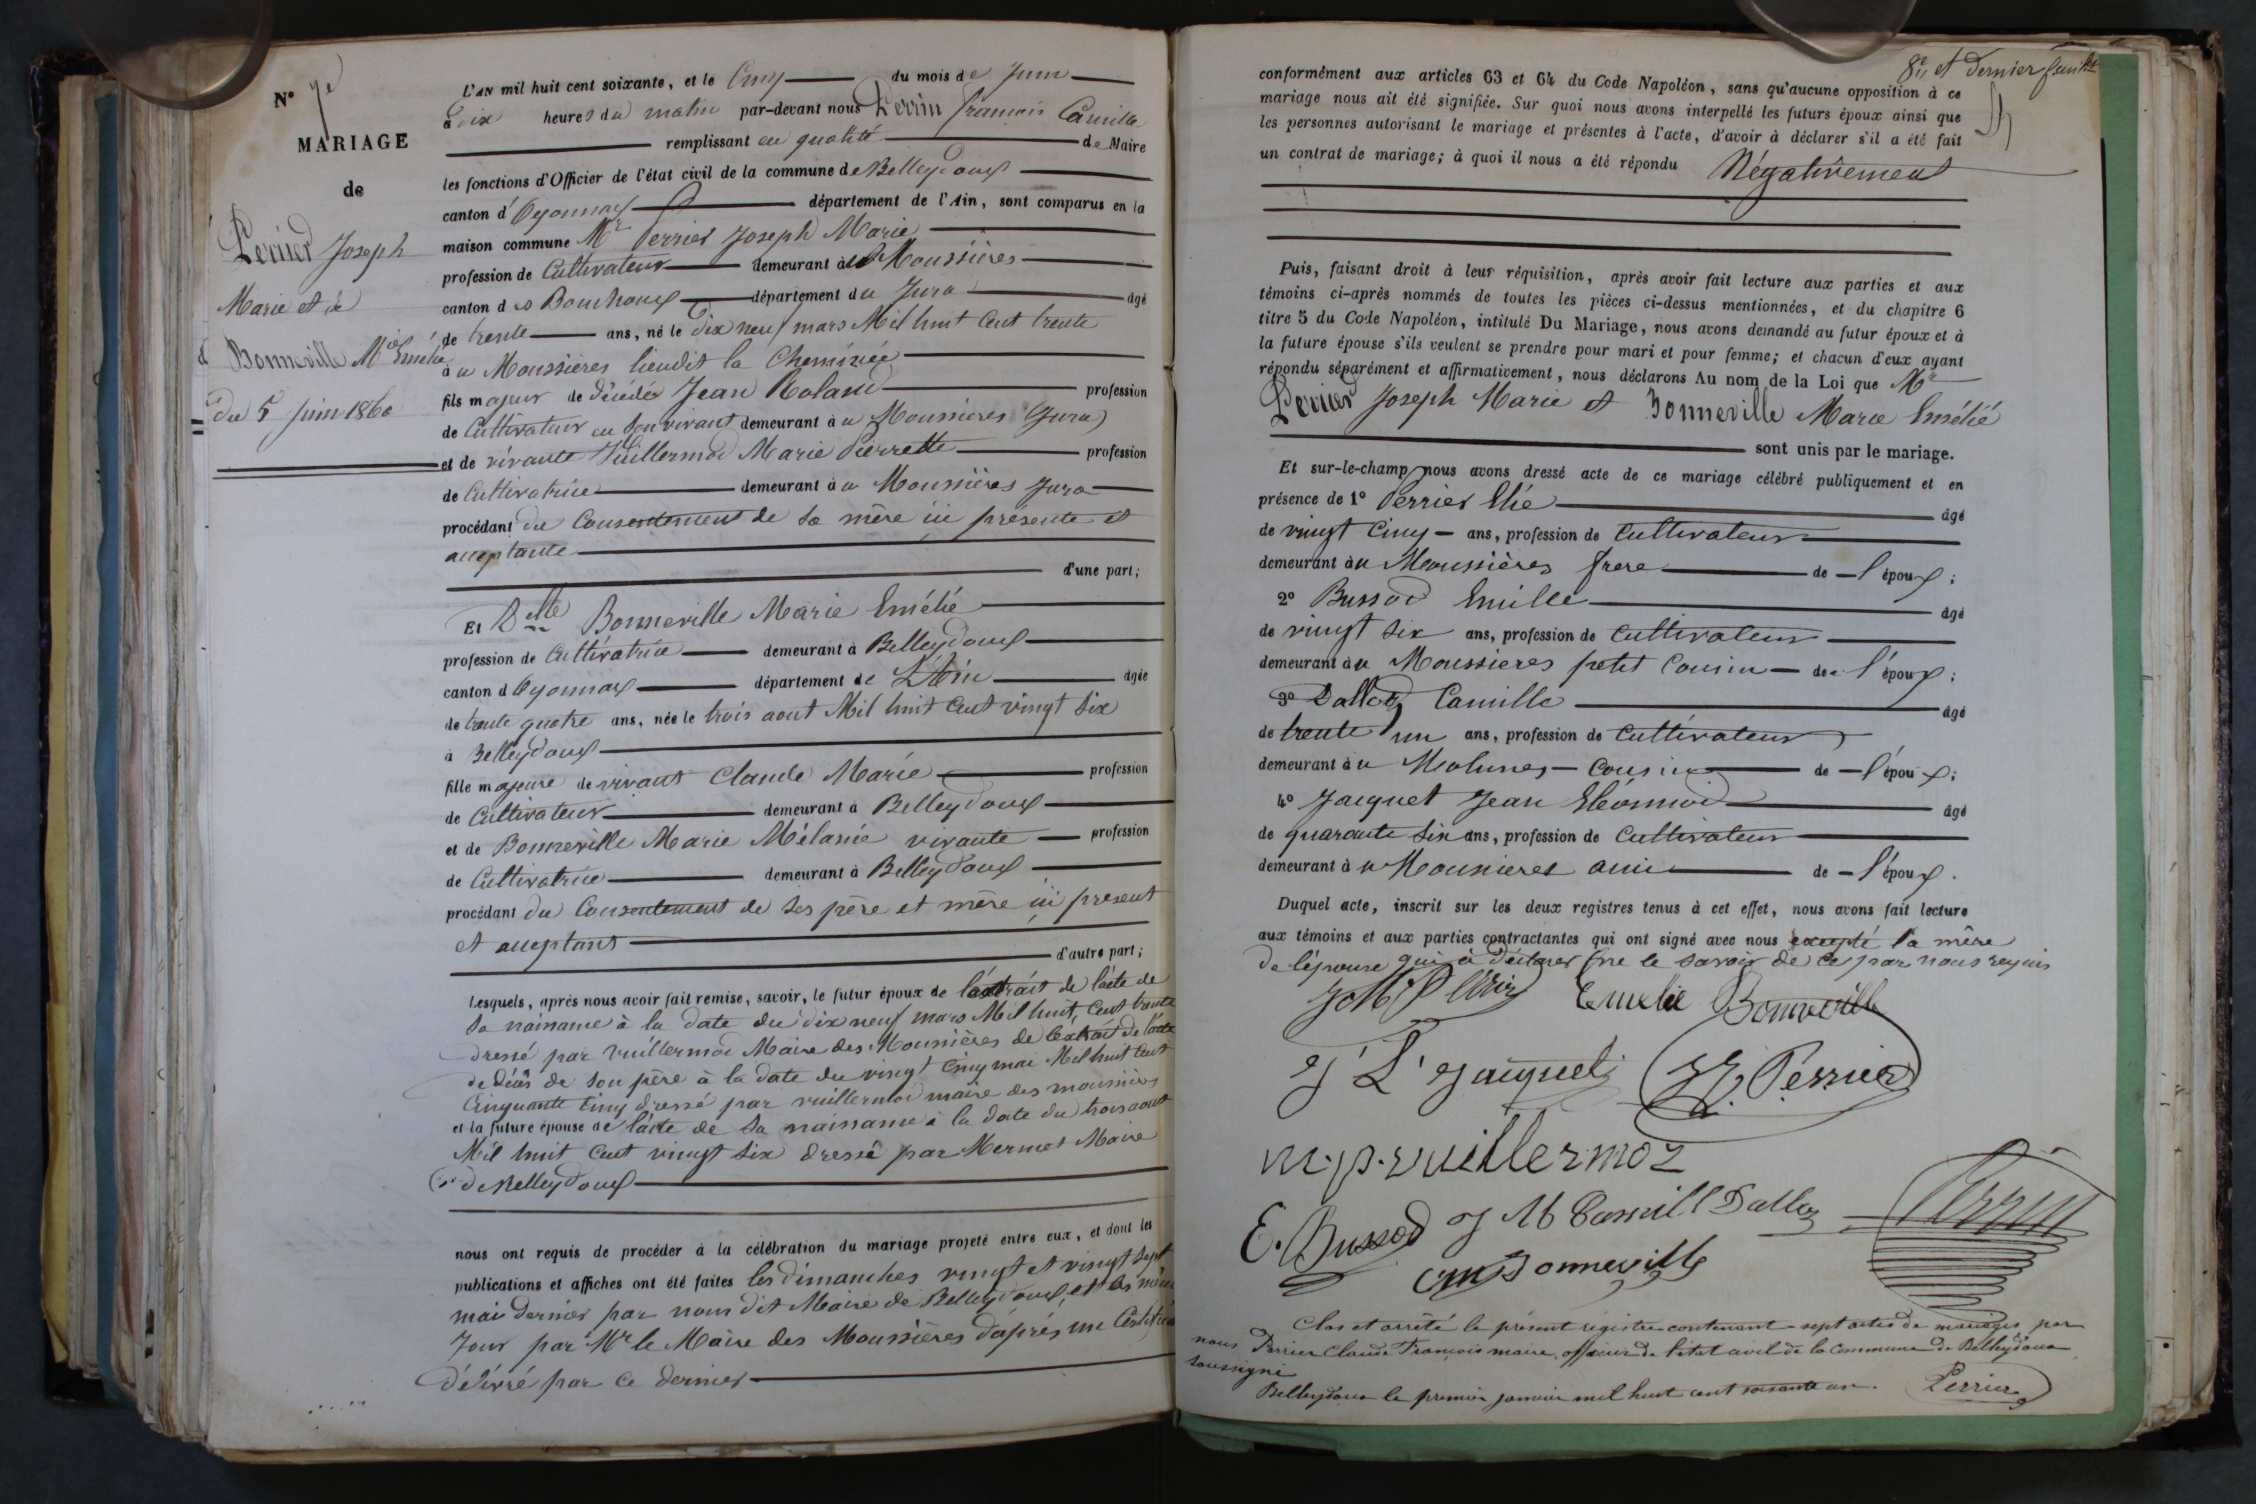 N° 7e
MARIAGE
de
Perrier Joseph
Marie et de
Bonneville Mie Emélie
du 5 Juin 1860
L'AN mil huit cent soixante, et le Cinq du mois de Juin
à dix heures du matin par-devant nous Perrin françois Camille
remplissant en qualité de Maire
les fonctions d'Officier de l'état civil de la commune de Belleydoux
canton d'Oyonnax département de l'Ain, sont comparus en la
maison commune Mr Perrier Joseph Marie
profession de Cultivateur demeurant à ux Moussières
canton des Bouchoux département du Jura âgé
de trente ans, né le dix neuf mars Mil huit Cent trente
à u Moussières lieudit la Cheminée
fils majeur de décédé Jean Roland profession
de Cultivateur en son vivant demeurant à u Moussieres (Jura)
et de vivante Vuillermoz Marie Pierrette profession
de Cultivatrice demeurant à u Moussières Jura
procédant du Consentement de sa mère ici présente et
acceptante
d'une part;
Et Delle Bonneville Marie Emélie
profession de Cultivatrice demeurant à Belleydoux
canton d Oyonnax département de L'Ain âgée
de trente quatre ans, née le trois aout Mil huit Cent vingt six
à Belleydoux
fille majeure de vivant Claude Marie profession
de Cultivateur demeurant à Belleydoux
et de Bonneville Marie Mélanie vivante profession
de Cultivatrice demeurant à Belleydoux
procédant du Consentement de ses père et mère ici présent
et acceptants
d'autre part;
Lesquels, après nous avoir fait remise, savoir, le futur époux de l'extrait de l'acte de
sa naissance à la date du dix neuf mars Mil huit Cent trente
dressé par Vuillermoz Maire des Moussières de l'extrait de l'acte
de décès de son père à la date du vingt Cinq mai Mil huit Cent
Cinquante Cinq dressé par vuillermoz maire des moussières
et la future épouse de l'acte de sa naissance à la date du trois aout
Mil huit Cent vingt six dressé par Mermet Maire
de Belleydoux
nous ont requis de procéder à la célébration du mariage projeté entre eux, et dont les
publications et affiches ont été faites les dimanches vingt et vingt sept
mai dernier par nous dit Maire de Belleydoux, et les même
Jour par Mr le Maire des Moussières d'après un Certificat
délivré par ce dernier
8e et dernier feuillet
conformément aux articles 63 et 64 du Code Napoléon, sans qu'aucune opposition à ce
mariage nous ait été signifiée. Sur quoi nous avons interpellé les futurs époux ainsi que
les personnes autorisant le mariage et présentes à l'acte, d'avoir à déclarer s'il a été fait
un contrat de mariage; à quoi il nous a été répondu Négativement
Puis, faisant droit à leur réquisition, après avoir fait lecture aux parties et aux
témoins ci-après nommés de toutes les pièces ci-dessus mentionnées, et du chapitre 6
titre 5 du Code Napoléon, intitulé Du Mariage, nous avons demandé au futur époux et à
la future épouse s'ils veulent se prendre pour mari et pour femme; et chacun d'eux ayant
répondu séparément et affirmativement, nous déclarons Au nom de la Loi que Mr
Perrier Joseph Marie et Bonneville Marie Emélié
sont unis par le mariage.
Et sur-le-champ nous avons dressé acte de ce mariage célébré publiquement et en
présence de 1° Perrier Elie âgé
de vingt Cinq ans, profession de Cultivateur
demeurant à u Moussières frere de l'époux;
2° Bussod Emille âgé
de vingt six ans, profession de Cultivateur
demeurant à u Moussieres petit Cousin de l'époux;
3° Dalloz Camille âgé
de trente un ans, profession de Cultivateur
demeurant à u Molunes Cousin de l'époux;
4° Jacquet Jean Eléonnod âgé
de quarante six ans, profession de Cultivateur
demeurant à u Moussieres ami de l'époux.
Duquel acte, inscrit sur les deux registres tenus à cet effet, nous avons fait lecture
aux témoins et aux parties contractantes qui ont signé avec nous excepté la mère
de l'épouse qui à déclarer ne le savoir de ce par nous requis
J M Périer Emelie Bonneville
J L Jacquet J E Perrier
m.p. vuillermoz
E. Bussod J M Camill Dalloz Perrin
cm Bonneville
Clos et arrêté le présent registre contenant sept actes de mariages par
nous Perrier Claude François maire, officier de l'état civil de la commune de Belleydoux
soussigné
Belleydoux le premier janvier mil huit cent soixante un. Perrier